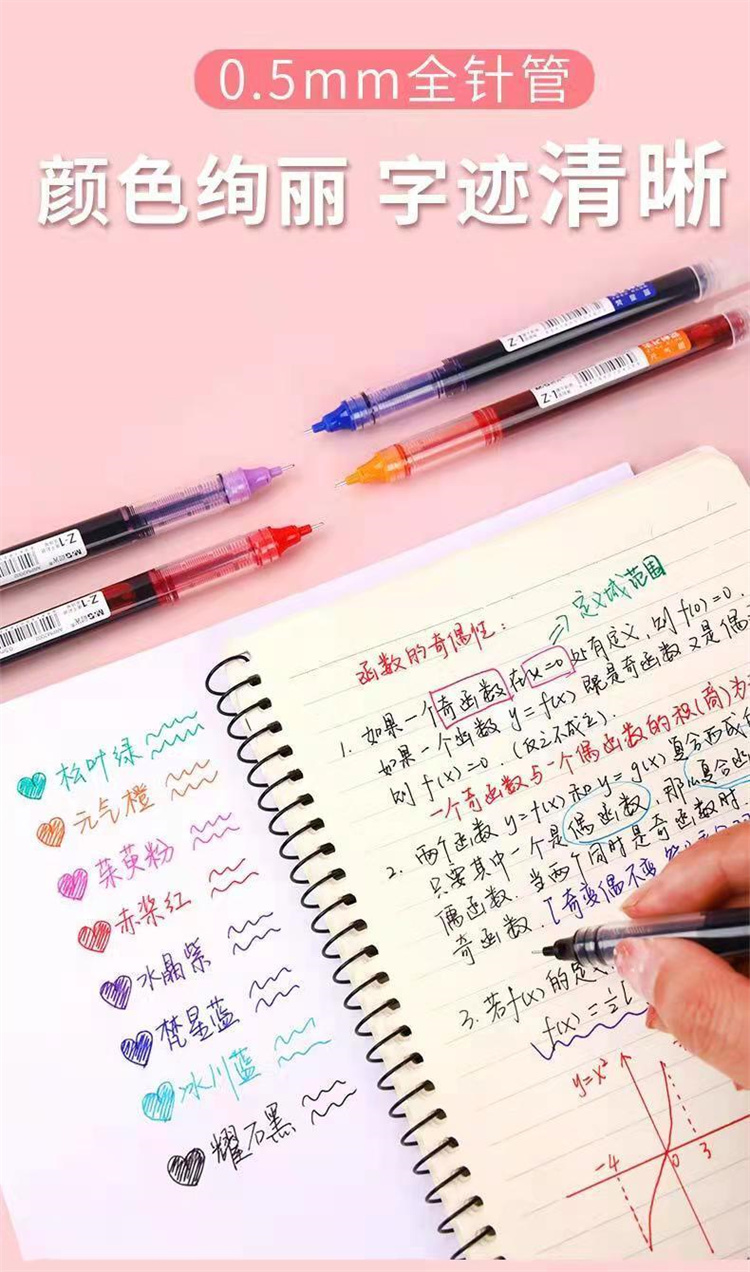 0.5mm全针管
颜色绚丽 字迹清晰
Z-1
Z-1
M&G
Z-1
M&G
Z-1
函数的奇偶性:
⇒ 定义域范围
1. 如果一个奇函数在x=0处有定义,则f(0)=0.
如果一个函数 y=f(x) 既是奇函数又是偶
则 f(x)=0. (反之不成立).
一个奇函数与一个偶函数的积(商)为
2. 两个函数 y=f(x) 和 y=g(x) 复合而成
只要其中一个是偶函数,那么复合
偶函数. 当两个同时是奇函数时
奇函数. [奇变偶不变
3. 若f(x)的定义
f(x)=½[
y=x²
-4 0 3
松叶绿
元气橙
茱萸粉
赤桨红
水晶紫
梵星蓝
冰川蓝
耀石黑